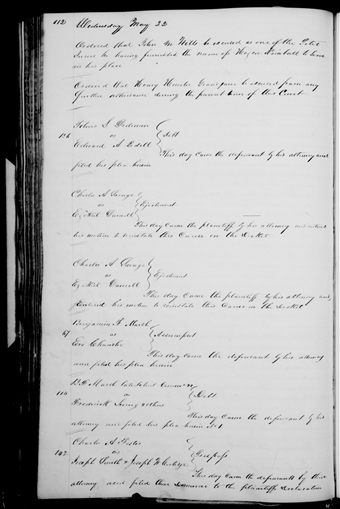 112 Wednesday May 22
Ordered that John M Wells be excused as one of the Petit
Jurors he having furnished the name of
in his place
Ordered that Henry Grand Juror be excused from any
further attendance during the present term of this Court
vs Debt
Edward A Bedell
This day came the defendant by his attorney and
filed his plea herein
Charles A Savage
vs Ejectment
Ezekiel Darnell
This day came the plaintiff by his attorney and entered
his motion to reinstate this Cause on the Docket
Charles A Savage
vs Ejectment
Ezekiel Darnell
This day came the plaintiff by his attorney and
entered his motion to reinstate this Cause on the Docket
Benjamin F Marsh
67 vs Assumpsit
This day came the defendant by his attorney
and filed his plea herein
vs Debt
Frederick & others
This day came the defendant by his
attorney and filed his plea herein
Charles A Foster
142 vs Trespass
Joseph Smith & Joseph W Coolidge
This day came the defendants by their
attorney and filed their demurrer to the plaintiffs declaration